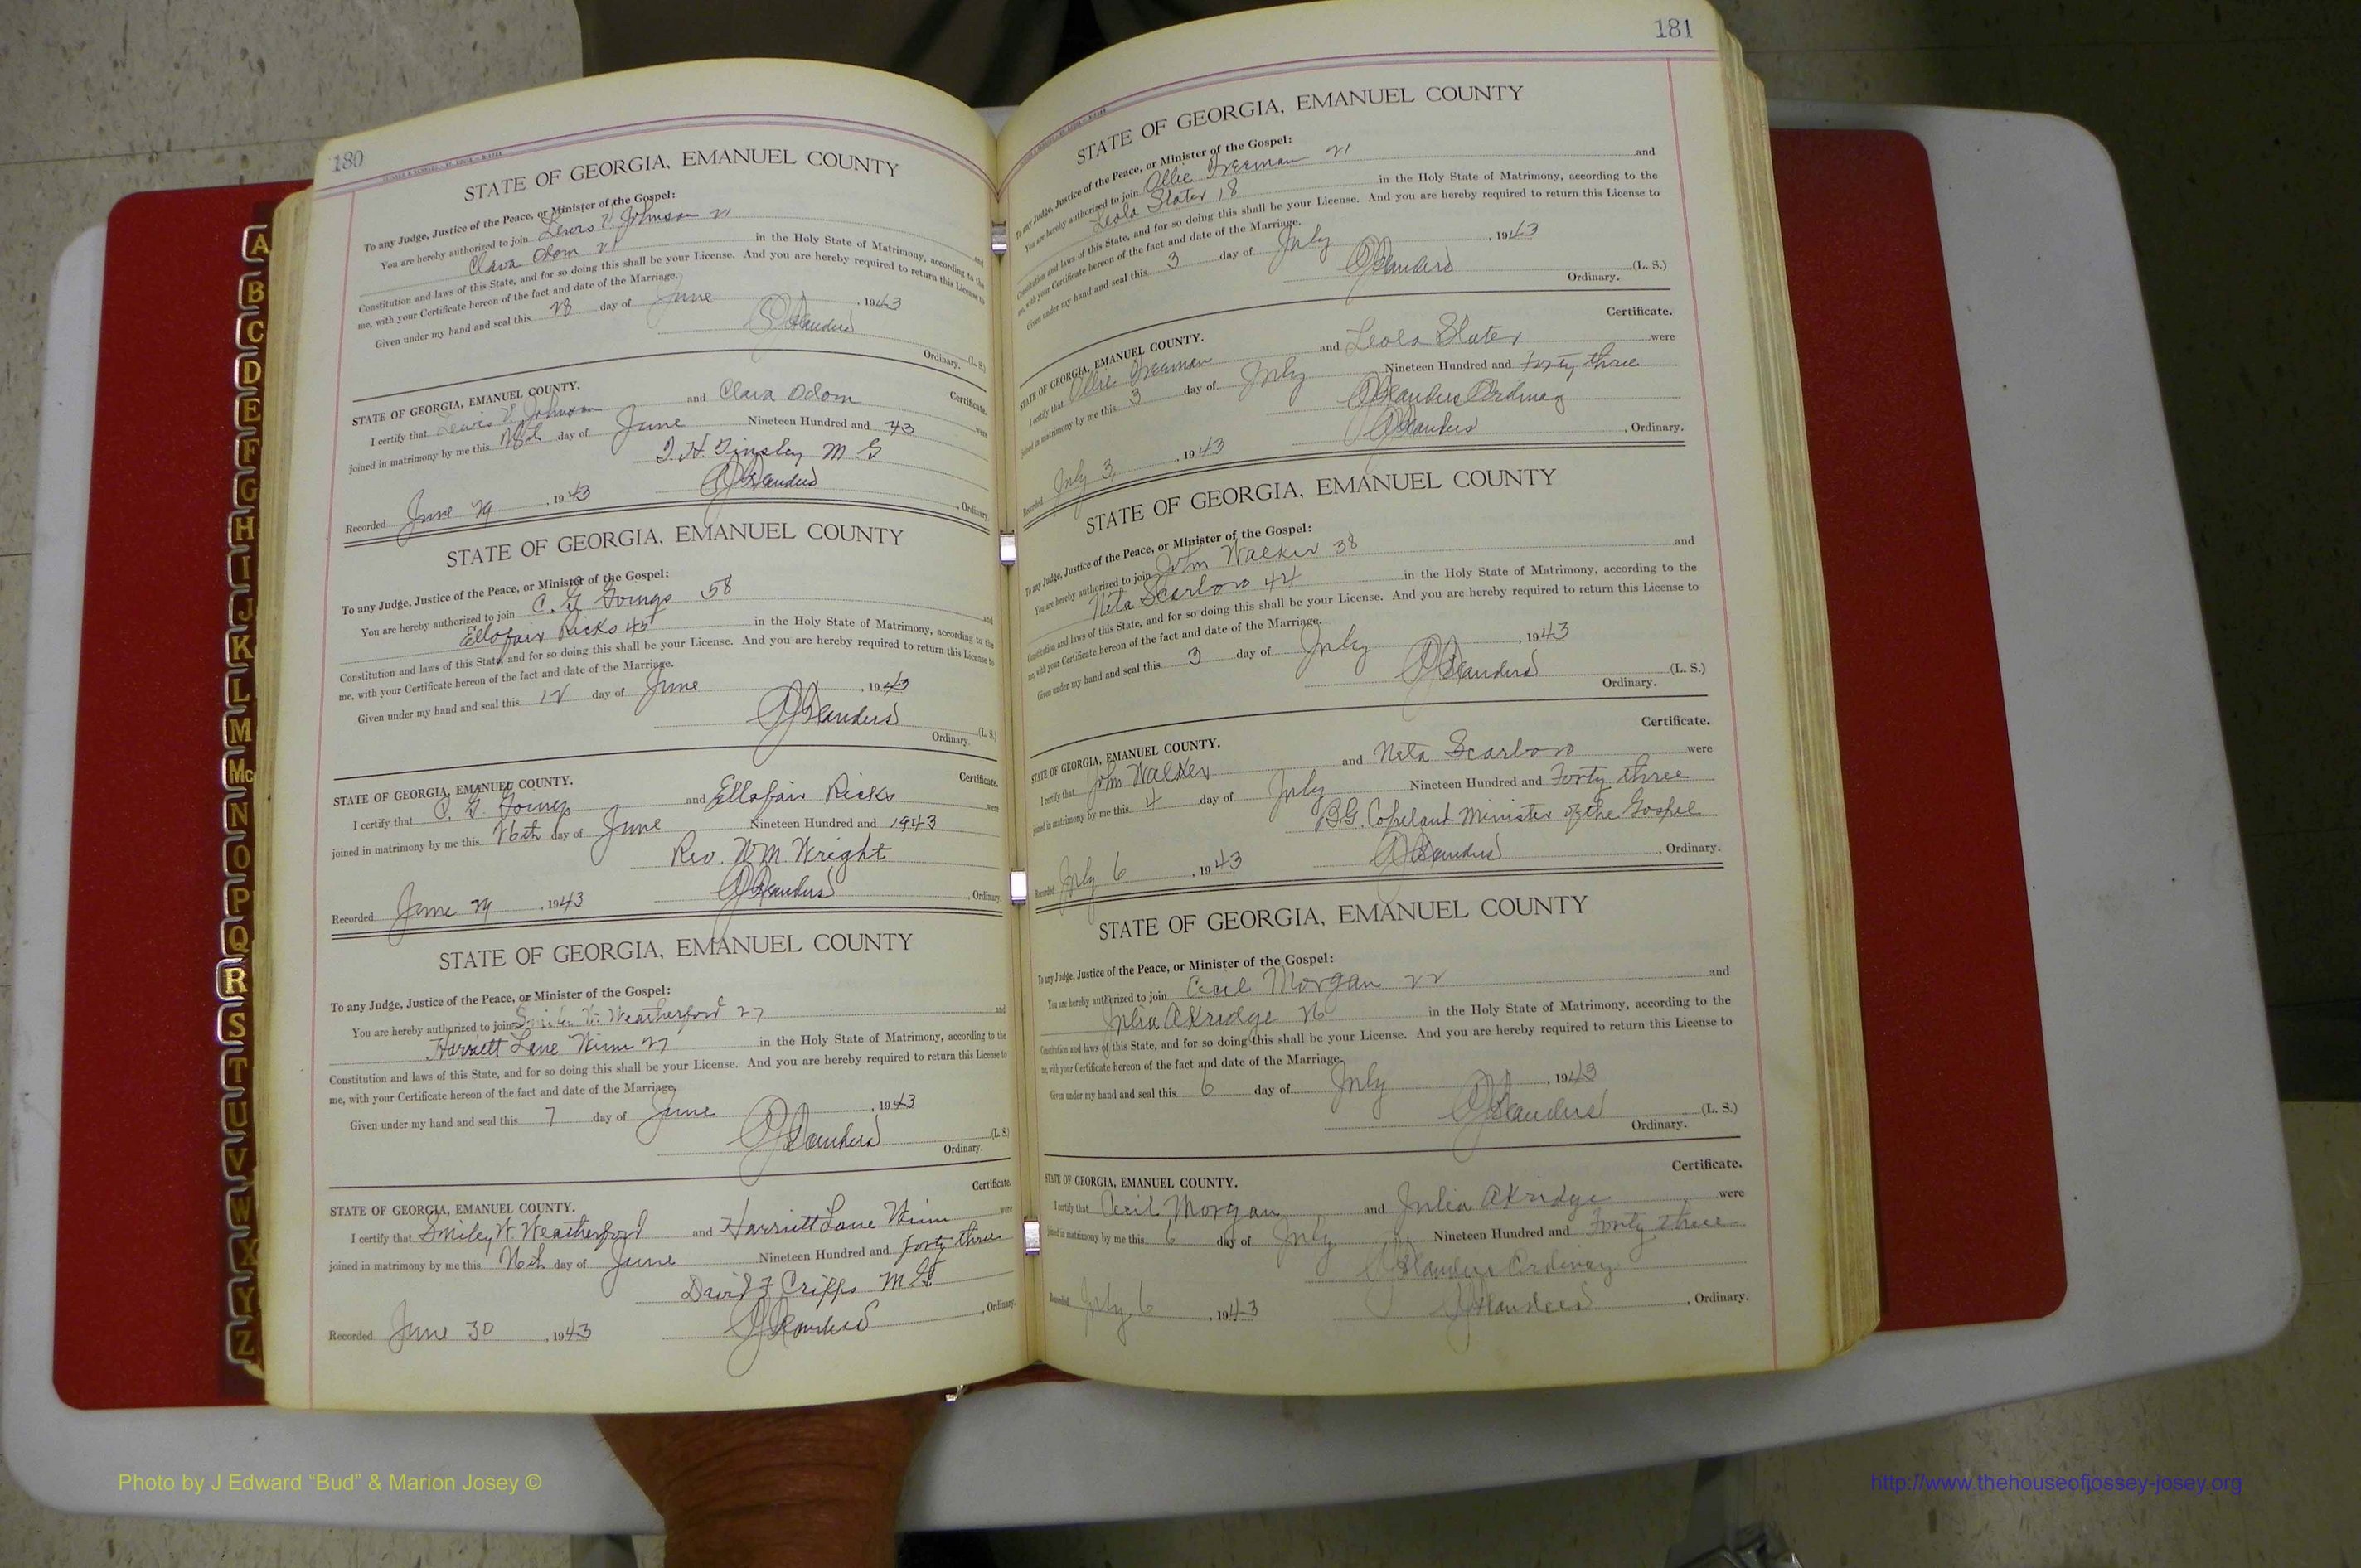 180
STATE OF GEORGIA, EMANUEL COUNTY
To any Judge, Justice of the Peace, or Minister of the Gospel:
You are hereby authorized to join Lewis Johnson 21 and
Clara Odom 21 in the Holy State of Matrimony, according to the
Constitution and laws of this State, and for so doing this shall be your License. And you are hereby required to return this License to
me, with your Certificate hereon of the fact and date of the Marriage.
Given under my hand and seal this 28 day of June, 1943
(L. S.)
Ordinary.
Certificate.
STATE OF GEORGIA, EMANUEL COUNTY.
I certify that Lewis Johnson and Clara Odom were
joined in matrimony by me this 28th day of June Nineteen Hundred and 43
Tinsley M G
Recorded June 29, 1943 Ordinary.
STATE OF GEORGIA, EMANUEL COUNTY
To any Judge, Justice of the Peace, or Minister of the Gospel:
You are hereby authorized to join C. G. 58 and
Ellafair Ricks 45 in the Holy State of Matrimony, according to the
Constitution and laws of this State, and for so doing this shall be your License. And you are hereby required to return this License to
me, with your Certificate hereon of the fact and date of the Marriage.
Given under my hand and seal this 12 day of June, 1943
(L. S.)
Ordinary.
Certificate.
STATE OF GEORGIA, EMANUEL COUNTY.
I certify that C. G. and Ellafair Ricks were
joined in matrimony by me this 26th day of June Nineteen Hundred and 1943
Rev. W M Wright
Recorded June 29, 1943 Ordinary.
STATE OF GEORGIA, EMANUEL COUNTY
To any Judge, Justice of the Peace, or Minister of the Gospel:
You are hereby authorized to join Smiley W. Weatherford 27 and
Harriett Lane Winn 27 in the Holy State of Matrimony, according to the
Constitution and laws of this State, and for so doing this shall be your License. And you are hereby required to return this License to
me, with your Certificate hereon of the fact and date of the Marriage.
Given under my hand and seal this 7 day of June, 1943
(L. S.)
Ordinary.
Certificate.
STATE OF GEORGIA, EMANUEL COUNTY.
I certify that Smiley W Weatherford and Harriett Lane Winn were
joined in matrimony by me this 26th day of June Nineteen Hundred and forty three
David F Cripps M.G.
Recorded June 30, 1943 Ordinary.
181
STATE OF GEORGIA, EMANUEL COUNTY
To any Judge, Justice of the Peace, or Minister of the Gospel:
You are hereby authorized to join Ollie Freeman 21 and
Leola Slater 18 in the Holy State of Matrimony, according to the
Constitution and laws of this State, and for so doing this shall be your License. And you are hereby required to return this License to
me, with your Certificate hereon of the fact and date of the Marriage.
Given under my hand and seal this 3 day of July, 1943
(L. S.)
Ordinary.
Certificate.
STATE OF GEORGIA, EMANUEL COUNTY.
I certify that Ollie Freeman and Leola Slater were
joined in matrimony by me this 3 day of July Nineteen Hundred and Forty three
Ordinary
Recorded July 3, 1943 Ordinary.
STATE OF GEORGIA, EMANUEL COUNTY
To any Judge, Justice of the Peace, or Minister of the Gospel:
You are hereby authorized to join John Walker 38 and
Neta Scarboro 44 in the Holy State of Matrimony, according to the
Constitution and laws of this State, and for so doing this shall be your License. And you are hereby required to return this License to
me, with your Certificate hereon of the fact and date of the Marriage.
Given under my hand and seal this 3 day of July, 1943
(L. S.)
Ordinary.
Certificate.
STATE OF GEORGIA, EMANUEL COUNTY.
I certify that John Walker and Neta Scarboro were
joined in matrimony by me this 4 day of July Nineteen Hundred and Forty three
B.G. Copeland Minister of the Gospel
Recorded July 6, 1943 Ordinary.
STATE OF GEORGIA, EMANUEL COUNTY
To any Judge, Justice of the Peace, or Minister of the Gospel:
You are hereby authorized to join Cecil Morgan 22 and
Julia Akridge 26 in the Holy State of Matrimony, according to the
Constitution and laws of this State, and for so doing this shall be your License. And you are hereby required to return this License to
me, with your Certificate hereon of the fact and date of the Marriage.
Given under my hand and seal this 6 day of July, 1943
(L. S.)
Ordinary.
Certificate.
STATE OF GEORGIA, EMANUEL COUNTY.
I certify that Cecil Morgan and Julia Akridge were
joined in matrimony by me this 6 day of July Nineteen Hundred and Forty three
Ordinary
Recorded July 6, 1943 Ordinary.
A
B
C
D
E
F
G
H
I
J
K
L
M
Mc
N
O
P
Q
R
S
T
U
V
W
X
Y
Z
Photo by J Edward “Bud” & Marion Josey ©
http://www.thehouseofjossey-josey.org